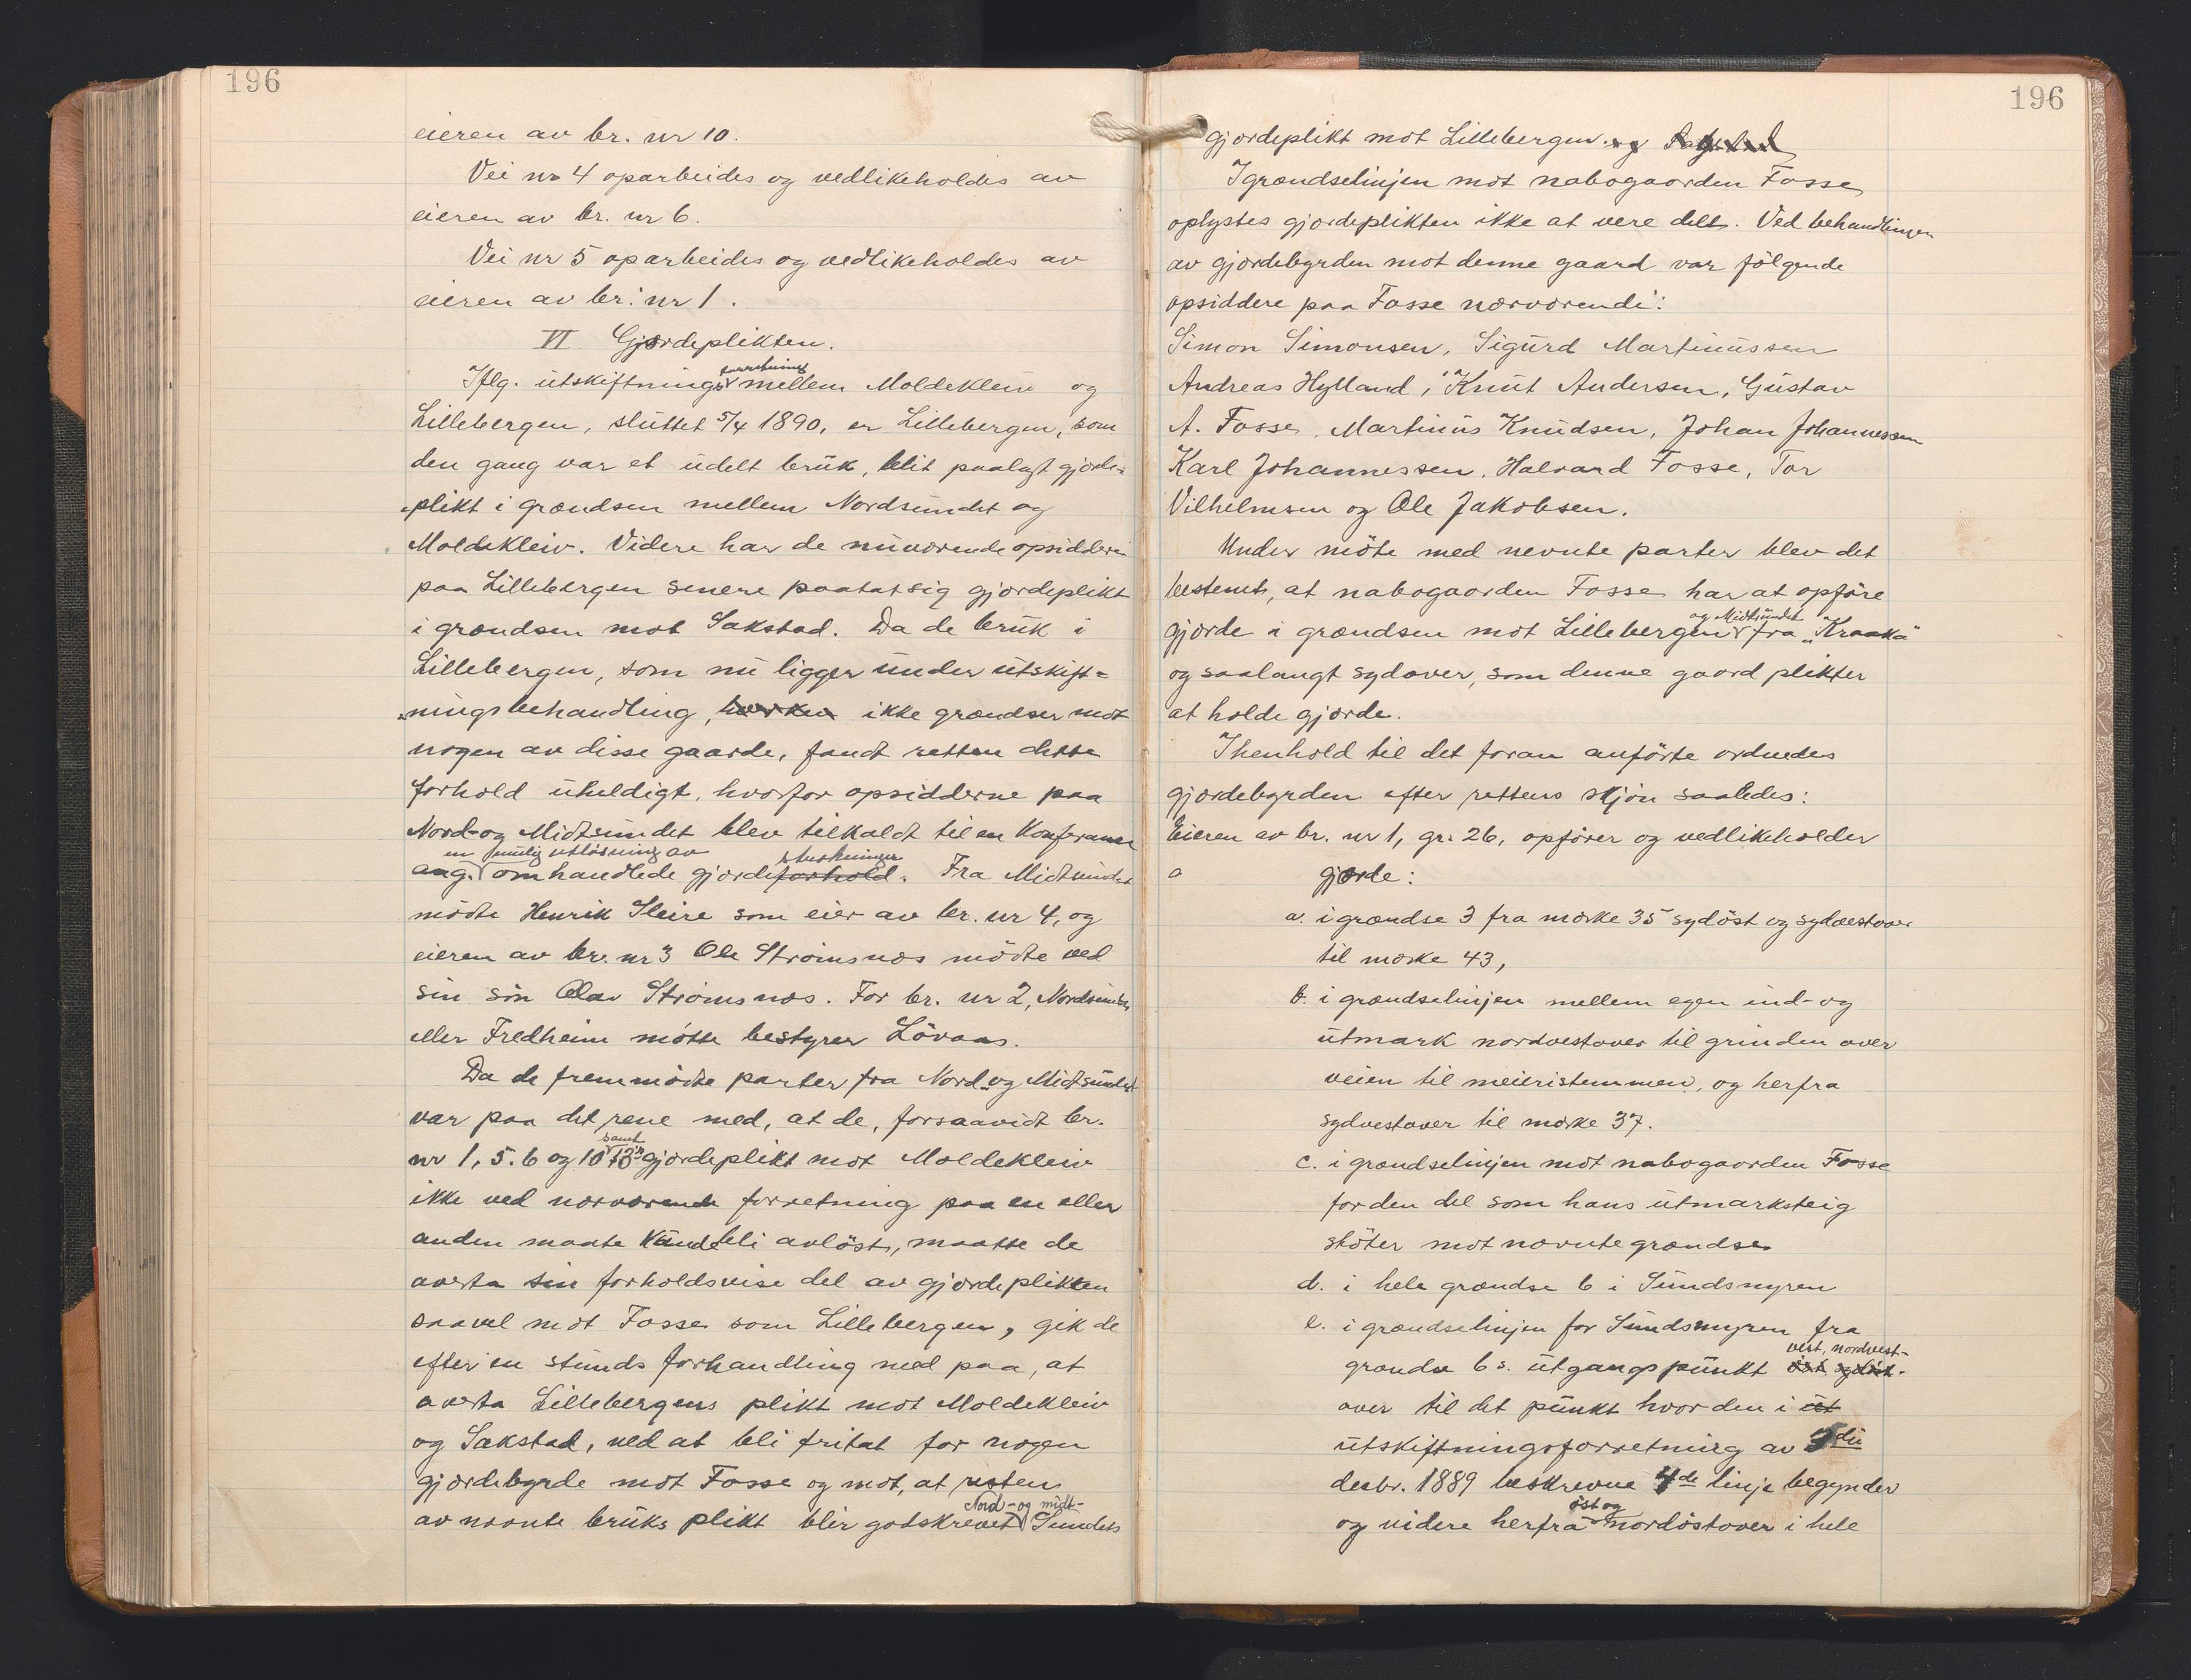 196
eieren av br. nr 10.
Vei nr 4 oparbeides og vedlikeholdes av
eieren av br. nr 6.
Vei nr 5 oparbeides og vedlikeholdes av
eieren av br. nr 1.
VI Gjærdeplikten.
forretning
Iflg. utskiftnings mellem Moldekleiv og
Lillebergen, sluttet 5/4 1890, er Lillebergen, som
den gang var et udelt bruk, blit paalagt gjærde-
plikt i grændsen mellem Nordsundet og
Moldekleiv. Videre har de nuværende opsiddere
paa Lillebergen senere paatat sig gjærdeplikt
i grændsen mot Sakstad. Da de bruk i
Lillebergen, som nu ligger under utskift-
ningsbehandling, hverken ikke grændser mot
nogen av disse gaarde, fandt retten dette
forhold uheldigt, hvorfor opsidderne paa
Nord- og Midtsundet blev tilkaldt til en Konferanse
en mulig utløsning av
ang. omhandlede gjærdeforhold. Fra Midtsundet
mødte Henrik Steire som eier av br. nr 4, og
eieren av br. nr 3 Ole Strømsnæs mødte ved
sin søn Olav Strømsnæs. For br. nr 2, Nordsundet
eller Fredheim møtte bestyrer Løvaas.
Da de fremmødte parter fra Nord- og Midtsundet
var paa det rene med, at de, forsaavidt br.
samt
nr 1, 5. 6 og 10 gjærdeplikt mot Moldekleiv
ikke ved nærværende forretning paa en eller
anden maate kunde bli avløst, maatte de
averta sin forholdsvise del av gjærdeplikten
saavel mot Fosse som Lillebergen, gik de
efter en stunds forhandling med paa, at
averta Lillebergens plikt mot Moldekleiv
og Sakstad, ved at bli fritat for nogen
gjærdebyrde mot Fosse og mot, at resten
Nord- og midt-
av nævnte bruks plikt blir godskrevet Sundets
196
gjærdeplikt mot Lillebergen. og Sakstad
I grændselinjen mot nabogaarden Fosse
oplystes gjærdeplikten ikke at være delt. Ved behandlingen
av gjærdebyrden mot denne gaard var følgende
opsiddere paa Fosse nærværende:
Simon Simonsen, Sigurd Martinussen
Andreas Hylland, Knut Andersen, Gustav
A. Fosse, Martinus Knudsen, Johan Johannessen
Karl Johannessen, Halvard Fosse, Tor
Vilhelmsen og Ole Jakobsen.
Under møte med nevnte parter blev det
bestemt, at nabogaarden Fosse har at opføre
og Midtsundet
gjærde i grændsen mot Lillebergen fra "Kraaka"
og saalangt sydover, som denne gaard plikter
at holde gjærde.
I henhold til det foran anførte ordnedes
gjærdebyrden efter rettens skjøn saaledes:
Eieren av br. nr 1, gr. 26, opfører og vedlikeholder
a gjærde:
a. i grændse 3 fra mærke 35 sydøst og sydvestover
til mærke 43,
b. i grændselinjen mellem egen ind- og
utmark nordvestover til grinden over
veien til meieristemmen, og herfra
sydvestover til mærke 37.
c. i grændselinjen mot nabogaarden Fosse
for den del som hans utmarksteig
støter mot nævnte grændse
d. i hele grændse 6 i Sundsmyren
e. i grændselinjen for Sundsmyren fra
vest, nordvest-
grændse 6s. utgangspunkt øst sydøst-
over til det punkt hvor den i ut
utskiftningsforretning av
decbr. 1889 beskrevne 4de linje begynder
øst og
og videre herfra nordøstover i hele